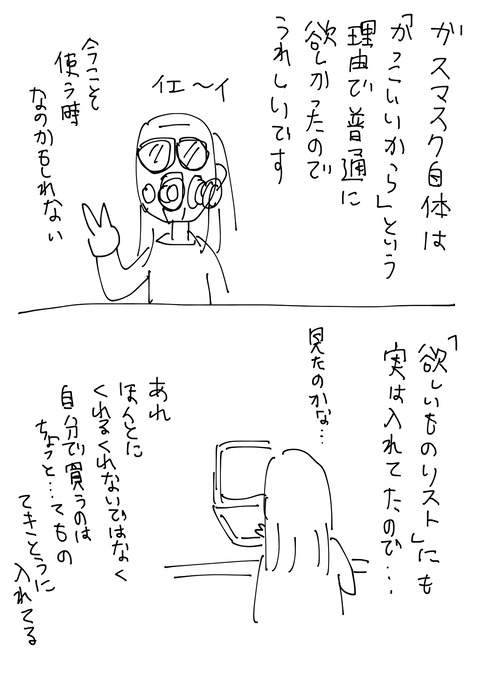 ガスマスク自体は
「かっこいいから」という
理由で普通に
欲しかったので
うれしいです
イエ〜イ
今こそ
使う時
なのかもしれない
「欲しいものリスト」にも
実は入れてたので…
見たのかな…
あれ
ほんとに
くれるくれないではなく
自分で買うのは
ちょっと…てもの
てきとうに
入れてる